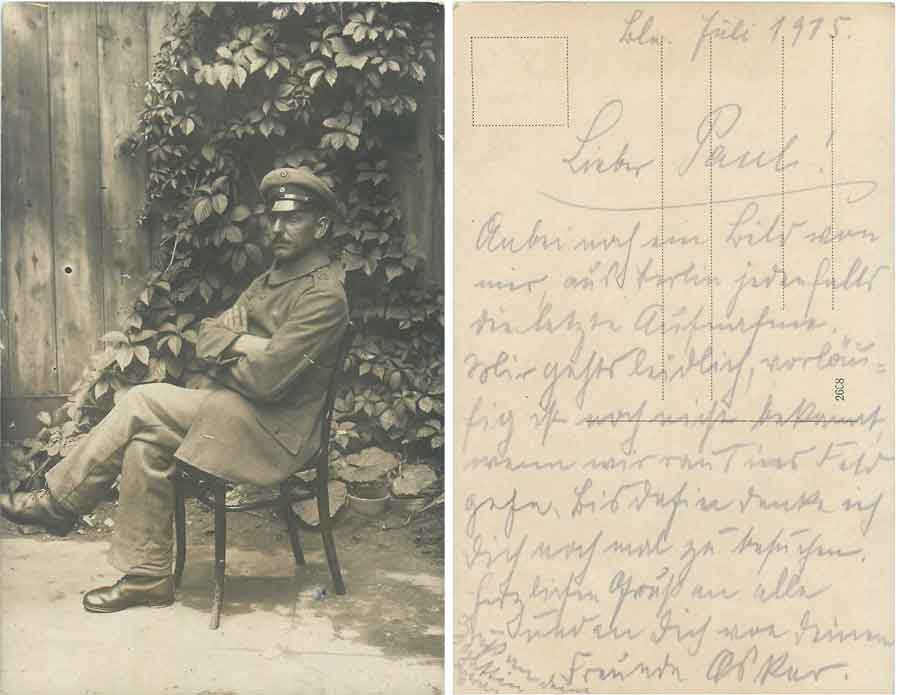 Bln. Juli 1915.
Lieber Paul!
Anbei noch ein Bild von
mir, aus Berlin jedenfalls
die letzte Aufnahme.
Mir gehts leidlich, vorläu-
fig ist noch nicht bekannt,
wenn wir raus ins Feld
gehn. Bis dahin denke ich
Dich noch mal zu besuchen.
Herzlichen Gruß an alle
und an Dich von deinem
Freunde Oskar.
2698